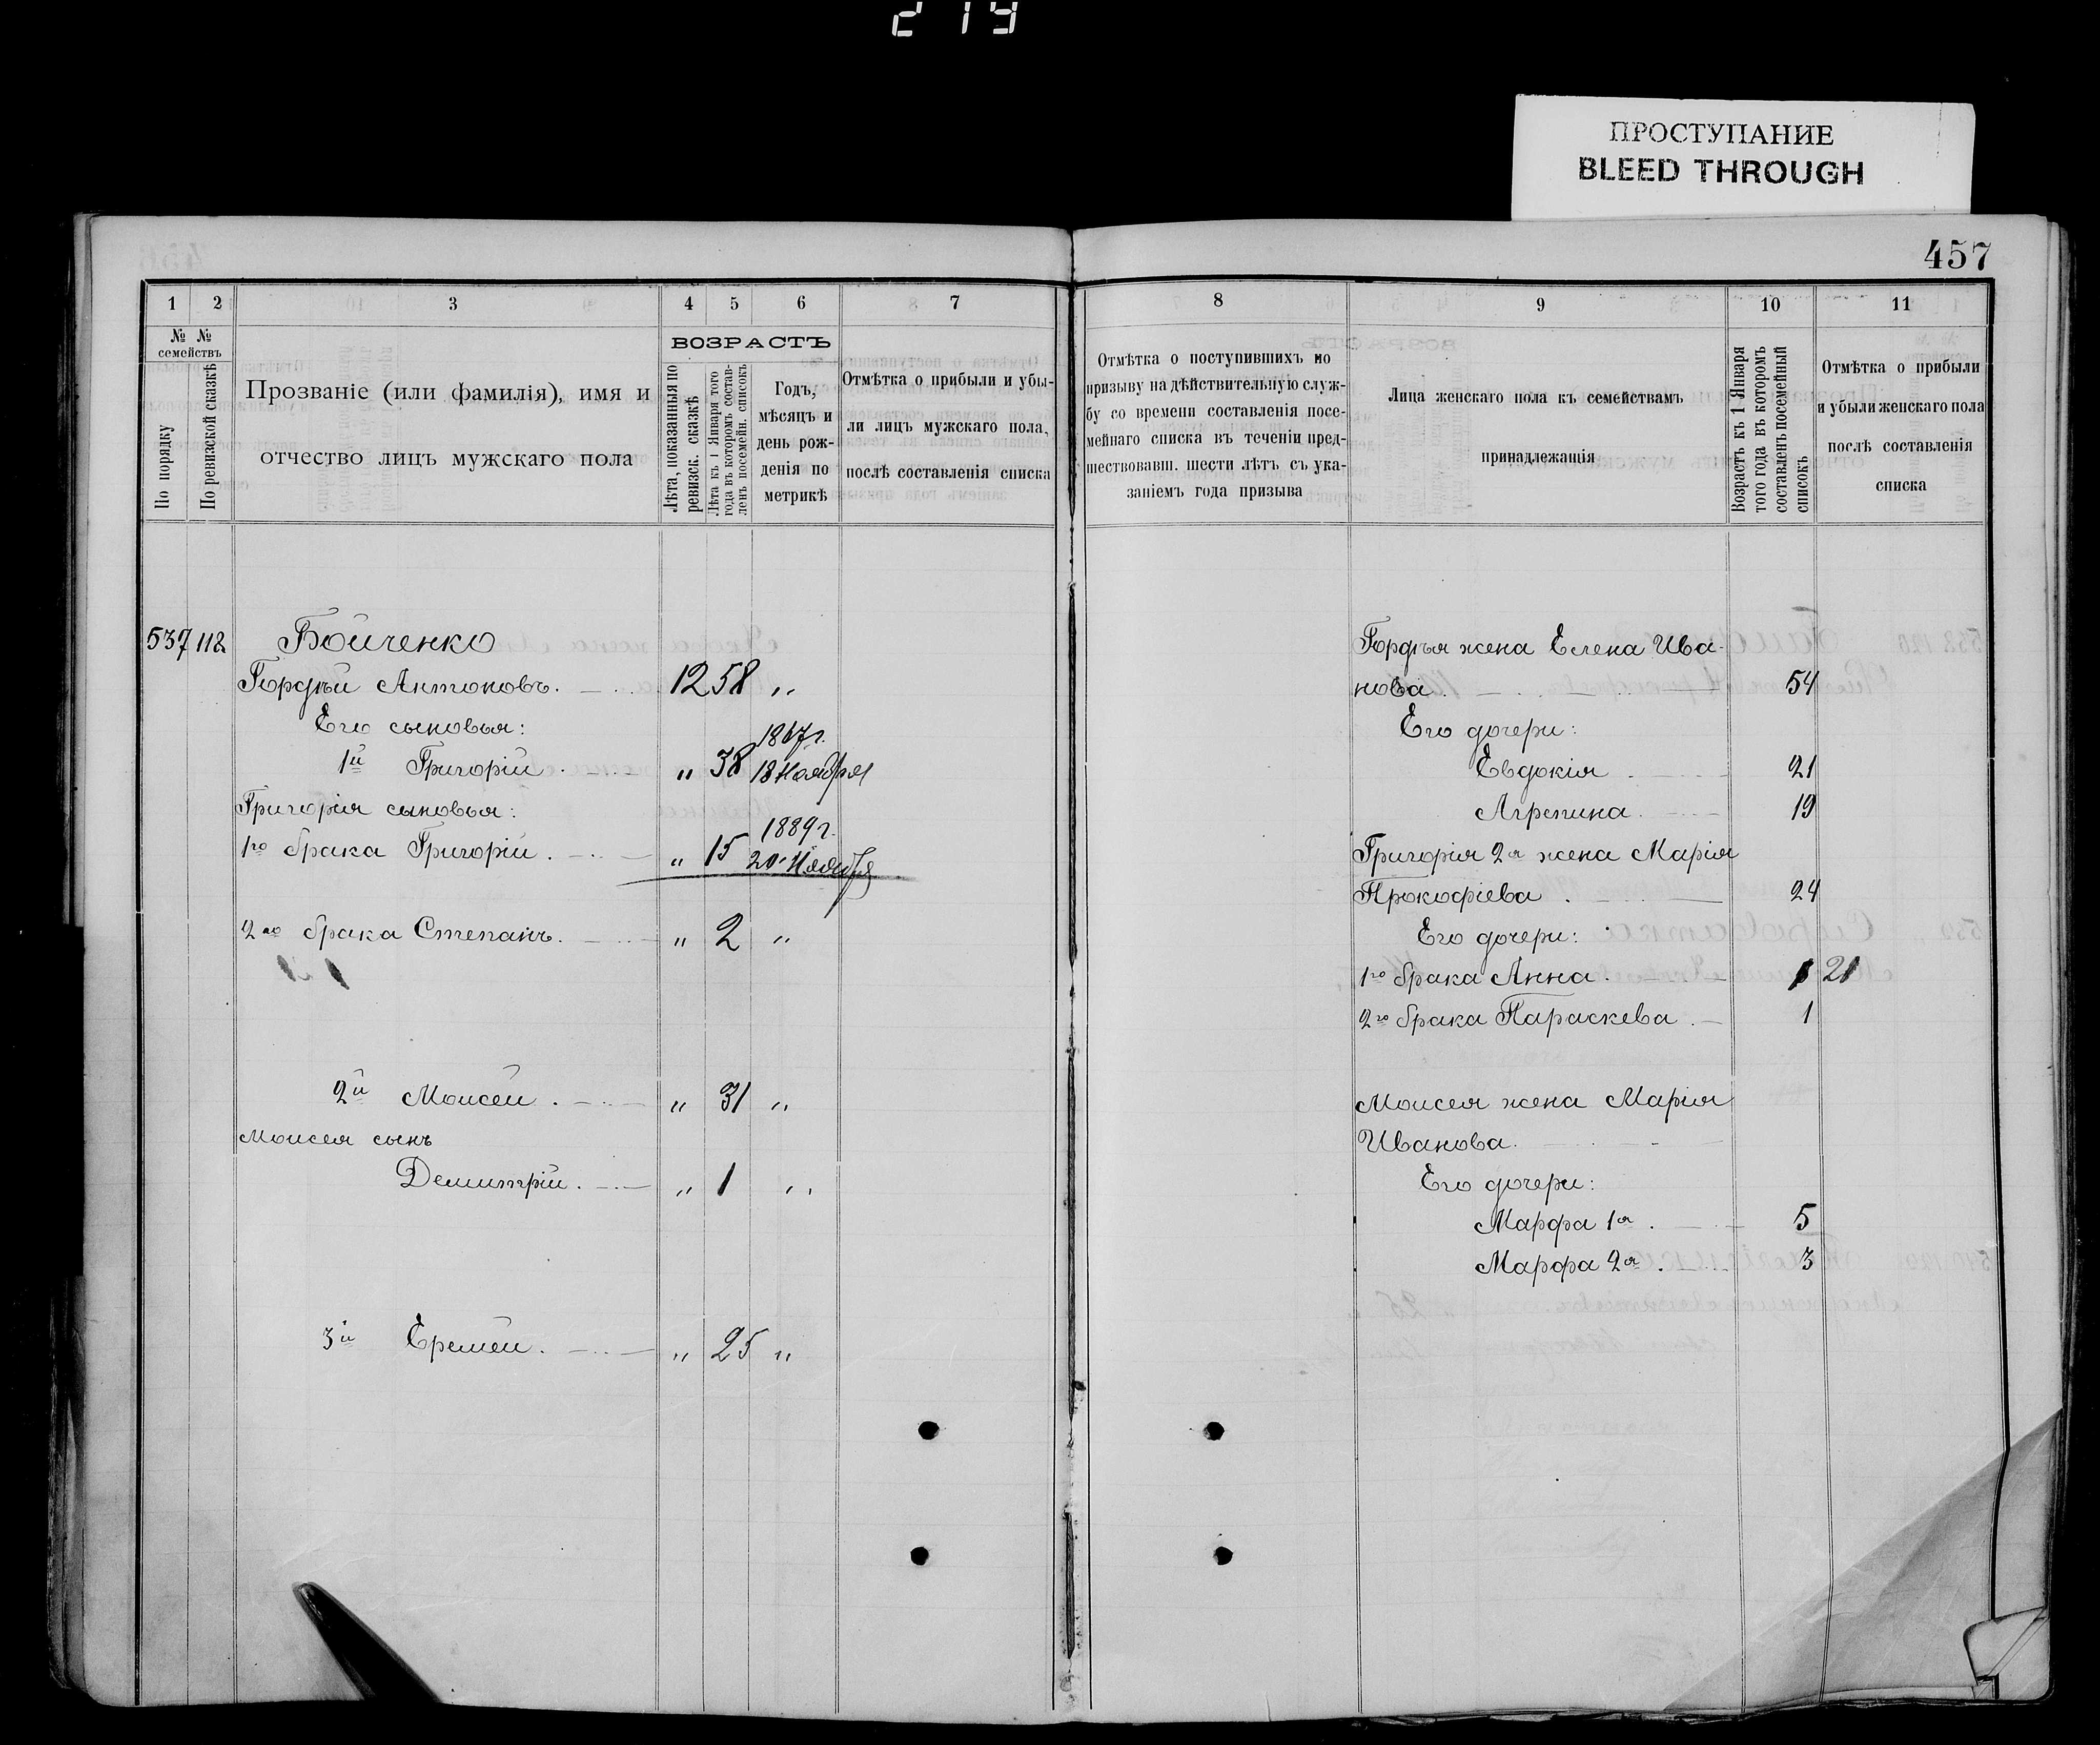 219
ПРОСТУПАНИЕ
BLEED THROUGH
457
1 2 3 4 5 6 7
№ № семействъ
По порядку
По ревизской сказкѣ
Прозваніе (или фамилія), имя и
отчество лицъ мужскаго пола
ВОЗРАСТЪ
Лѣта, показанныя по
ревизск. сказкѣ
Лѣта къ 1 Января того
года въ которомъ состав-
ленъ посемейн. списокъ
Годъ,
мѣсяцъ и
день рож-
денія по
метрикѣ
Отмѣтка о прибыли и убы-
ли лицъ мужскаго пола,
послѣ составленія списка
537 112 Бойченко
Гордѣй Антоновъ. 12 58 "
Его сыновья:
1й Григорій. " 38 1867 г.
18 Ноября
Григорія сыновья:
1го брака Григорій. " 15 1889 г.
20 Ноября
2го брака Степанъ. " 2 "
2й Моисей. " 31 "
Моисея сынъ
Демитрій. " 1 "
3й Еремей. " 25 "
8 9 10 11
Отмѣтка о поступившихъ по
призыву на дѣйствительную служ-
бу со времени составленія посе-
мейнаго списка въ теченіи пред-
шествовавш. шести лѣтъ съ ука-
заніемъ года призыва
Лица женскаго пола къ семействамъ
принадлежащія
Возрастъ къ 1 Января
того года въ которомъ
составленъ посемейный
списокъ
Отмѣтка о прибыли
и убыли женскаго пола
послѣ составленія
списка
Гордѣя жена Елена Ива-
нова. 54
Его дочери:
Евдокія 21
Агрепина. 19
Григорія 2я жена Марія
Прокофіева. 24
Его дочери:
1го брака Анна. 21
2го брака Параскева. 1
Моисея жена Марія
Иванова.
Его дочери:
Марфа 1я. 5
Марфа 2я. 3